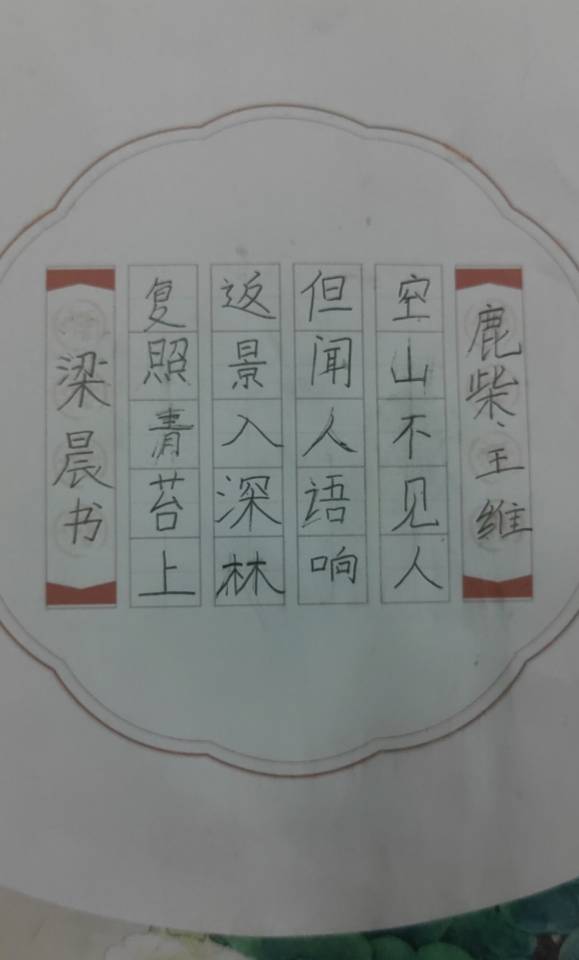 鹿柴、王维
空山不见人
但闻人语响
返景入深林
复照青苔上
梁晨书